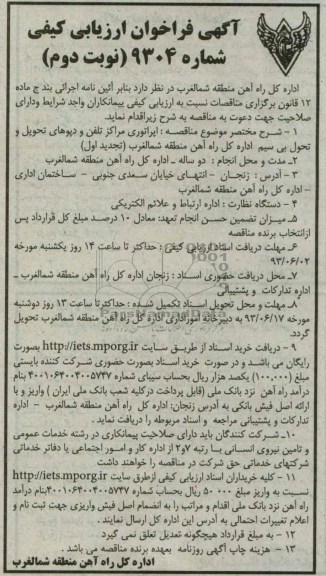 آگهی فراخوان ارزیابی کیفی
شماره ۹۳۰۴ (نوبت دوم)
اداره کل راه آهن منطقه شمالغرب در نظر دارد بنابر آئین نامه اجرائی بند ج ماده
۱۲ قانون برگزاری مناقصات نسبت به ارزیابی کیفی پیمانکاران واجد شرایط ودارای
صلاحیت جهت دعوت به مناقصه به شرح زیراقدام نماید.
۱ – شرح مختصر موضوع مناقصه : اپراتوری مراکز تلفن و دپوهای تحویل و
تحول بی سیم اداره کل راه آهن منطقه شمالغرب (تجدید اول)
۲ـ مدت و محل انجام : دو ساله ـ اداره کل راه آهن منطقه شمالغرب
۳ – آدرس : زنجان – انتهای خیابان سعدی جنوبی – ساختمان اداری
– اداره کل راه آهن منطقه شمالغرب
۴ – دستگاه نظارت : اداره ارتباط و علائم الکتریکی
۵ـ میزان تضمین حسن انجام تعهد: معادل ۱۰ درصد مبلغ کل قرارداد پس
ازانتخاب برنده مناقصه
۶ـ مهلت دریافت اسناد ارزیابی کیفی : حداکثر تا ساعت ۱۴ روز یکشنبه مورخه
۹۳/۰۶/۰۲
۷ـ محل دریافت حضوری اسناد : زنجان اداره کل راه آهن منطقه شمالغرب ـ
اداره تدارکات و پشتیبانی
۸ـ مهلت و محل تحویل اسناد تکمیل شده : حداکثر تا ساعت ۱۳ روز دوشنبه
مورخه ۹۳/۰۶/۱۷ به دبیرخانه اموراداری اداره کل راه آهن منطقه شمالغرب تحویل
گردد.
۹ – دریافت خرید اسناد از طریق سایت http://iets.mporg.ir بصورت
رایگان می باشد و در صورت خرید اسناد بصورت حضوری شرکت کننده بایستی
مبلغ (۱۰۰,۰۰۰) یکصد هزار ریال بحساب سیبای شماره ۴۰۰۱۰۶۴۰۰۴۰۰۵۷۴۷ بنام
درآمد راه آهن نزد بانک ملی (قابل پرداخت درکلیه شعب بانک ملی ایران ) واریز و با
ارائه اصل فیش بانکی به آدرس زنجان: اداره کل راه آهن منطقه شمالغرب – اداره
تدارکات و پشتیبانی مراجعه و اسناد مربوطه را دریافت نماید .
۱۰ـ شرکت کنندگان باید دارای صلاحیت پیمانکاری در رشته خدمات عمومی
و تامین نیروی انسانی با رتبه ۷و۲ از اداره کار و امور اجتماعی یا دفاتر خدماتی
شرکتهای خدماتی حق شرکت در مناقصه را خواهند داشت
۱۱ – کلیه خریداران اسناد ارزیابی کیفی ازطرق سایت http://iets.mporg.ir
نسبت به واریز مبلغ ۵۰۰۰۰ ریال بحساب شماره ۴۰۰۱۰۶۴۰۰۴۰۰۵۷۴۷بنام درآمد
راه آهن نزد بانک ملی اقدام و مراتب را به انضمام اصل فیش واریزی جهت ثبت نام و
اعلام تغییرات احتمالی به آدرس این اداره کل ارسال نمایند .
۱۲ – به مبلغ قرارداد هیچگونه تعدیل تعلق نمی گیرد
۱۳ – هزینه چاپ آگهی روزنامه بعهده برنده مناقصه می باشد .
اداره کل راه آهن منطقه شمالغرب